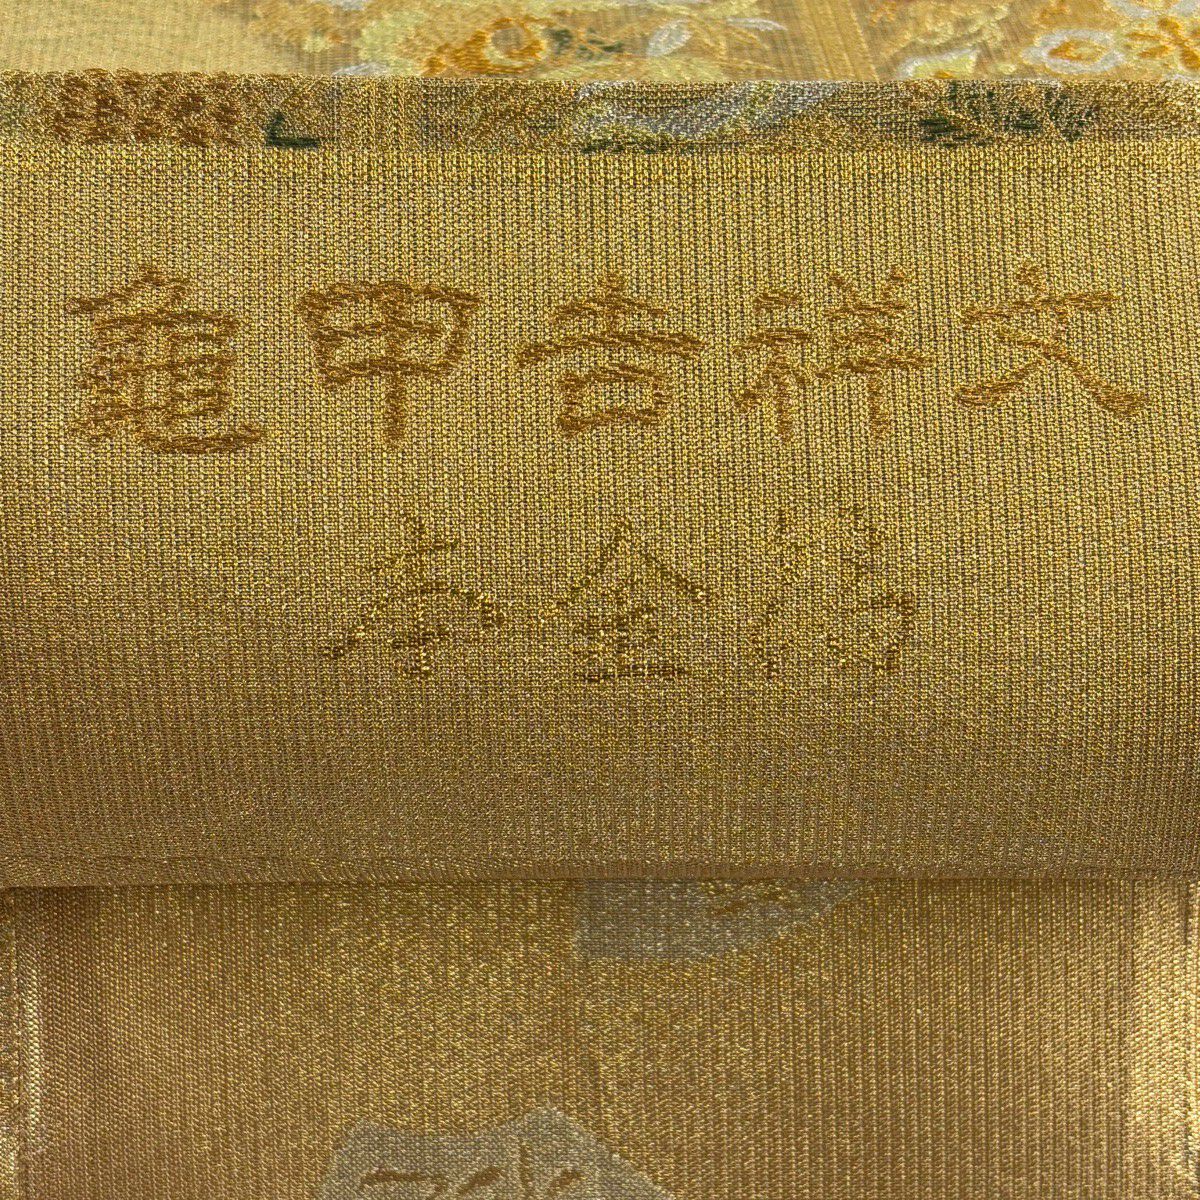 亀甲吉祥文
本金箔